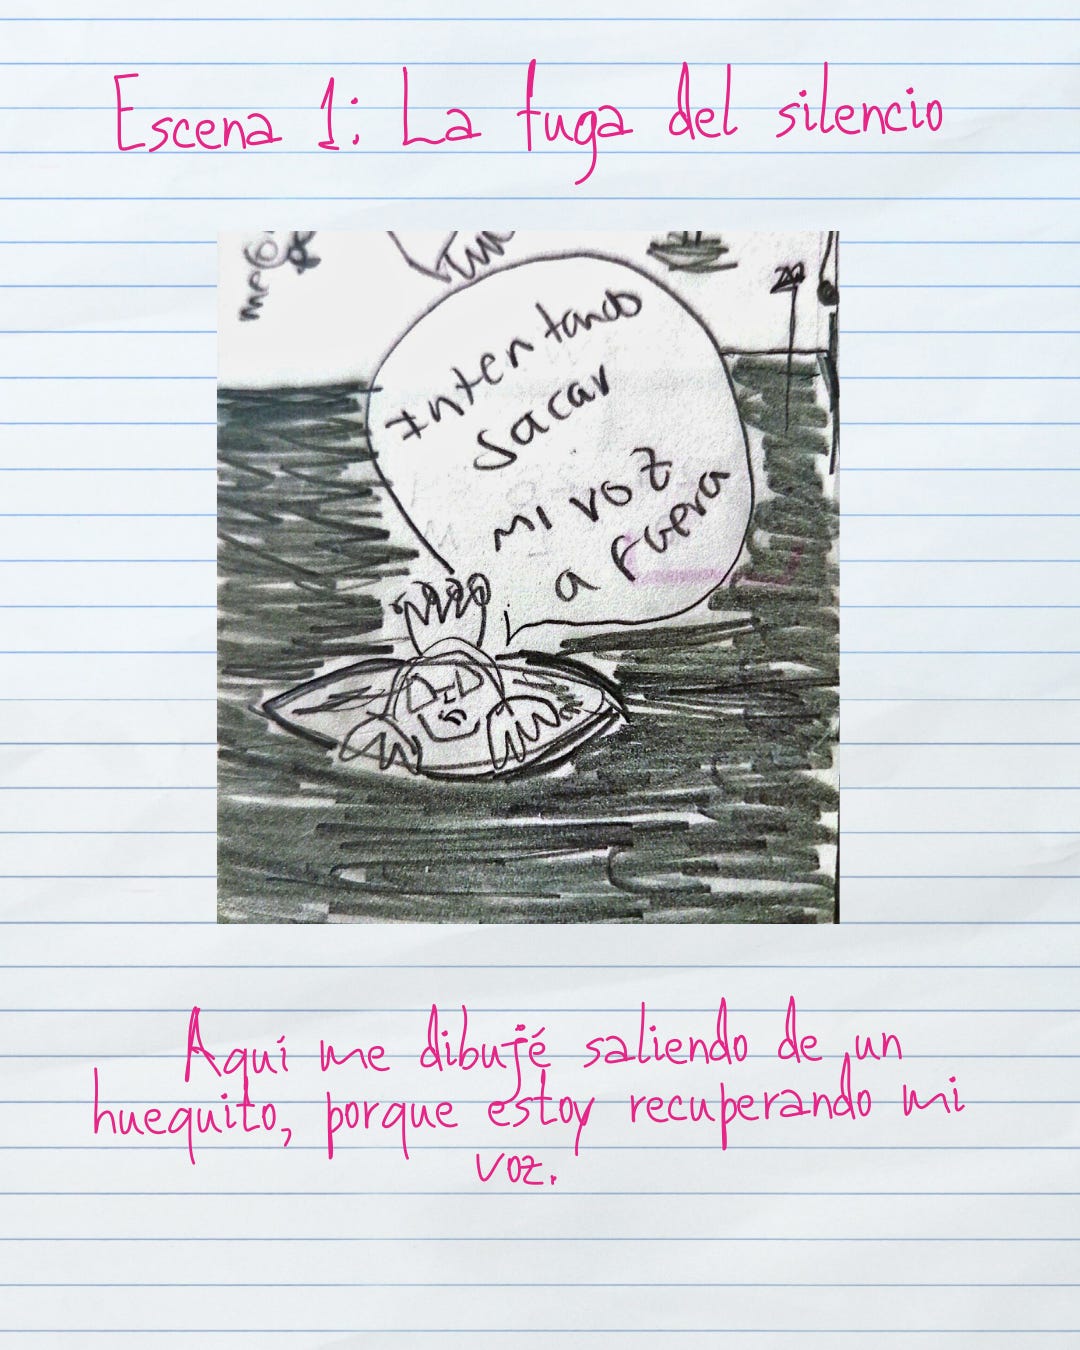 Escena 1: La fuga del silencio
Intentando
sacar
mi voz
a fuera
Aquí me dibujé saliendo de un
huequito, porque estoy recuperando mi
voz.